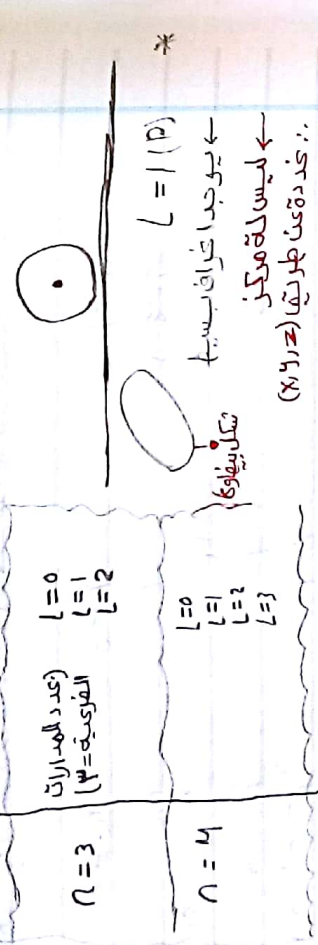 * L=1 (P)
← يوجد انحراف بسيط
← ليس له مركز
∴ نحدده عن طريق (x,y,z)
شكل بيضاوي
n=3
(عدد المدارات
الفرعية = 3)
L=0
L=1
L=2
n=4
L=0
L=1
L=2
L=3